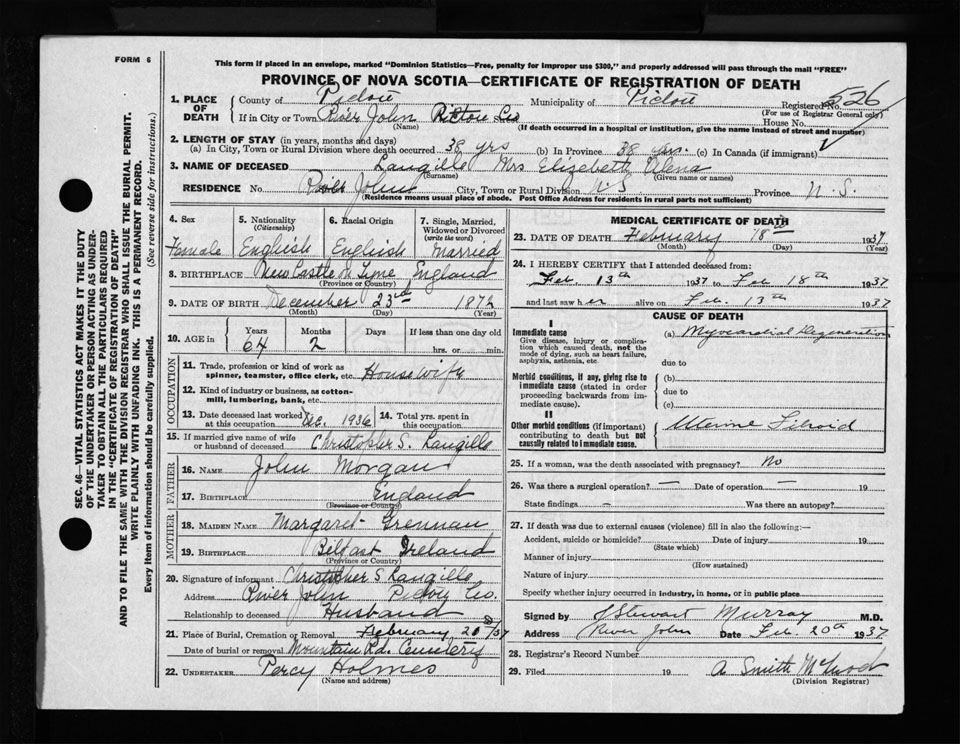 FORM 6
This form if placed in an envelope, marked "Dominion Statistics—Free, penalty for improper use $300," and properly addressed will pass through the mail "FREE"
PROVINCE OF NOVA SCOTIA—CERTIFICATE OF REGISTRATION OF DEATH
1. PLACE OF DEATH County of Pictou Municipality of Pictou Registered No. 526
(For use of Registrar General only)
If in City or Town River John Pictou Co House No.
(Name) (If death occurred in a hospital or institution, give the name instead of street and number)
2. LENGTH OF STAY (in years, months and days)
(a) In City, Town or Rural Division where death occurred 38 yrs (b) In Province 38 yrs. (c) In Canada (if immigrant)
3. NAME OF DECEASED Langille Mrs Elizebeth Olena
(Surname) (Given name or names)
RESIDENCE No. River John City, Town or Rural Division N.S Province N.S.
(Residence means usual place of abode. Post Office Address for residents in rural parts not sufficient)
4. Sex 5. Nationality (Citizenship) 6. Racial Origin 7. Single, Married, Widowed or Divorced (write the word)
Female English English Married
8. BIRTHPLACE New Castle N. Tyne England
(Province or Country)
9. DATE OF BIRTH December 23rd 1872
(Month) (Day) (Year)
10. AGE in Years Months Days If less than one day old
64 2 hrs. or min.
OCCUPATION
11. Trade, profession or kind of work as spinner, teamster, office clerk, etc. Housewife
12. Kind of industry or business, as cotton-mill, lumbering, bank, etc.
13. Date deceased last worked at this occupation Dec. 1936 14. Total yrs. spent in this occupation
15. If married give name of wife or husband of deceased Christopher S. Langille
FATHER
16. NAME John Morgan
17. BIRTHPLACE England
(Province or Country)
MOTHER
18. MAIDEN NAME Margaret Grennan
19. BIRTHPLACE Belfast Ireland
(Province or Country)
20. Signature of informant Christopher S Langille
Address River John Pictou Co.
Relationship to deceased Husband
21. Place of Burial, Cremation or Removal February 20/37
Date of burial or removal Mountain Rd. Cemetery
22. UNDERTAKER Percy Holmes
(Name and address)
MEDICAL CERTIFICATE OF DEATH
23. DATE OF DEATH February 18th 1937
(Month) (Day) (Year)
24. I HEREBY CERTIFY that I attended deceased from:
Feb. 13th 1937 to Feb 18th 1937
and last saw h er alive on Feb. 13th 1937
CAUSE OF DEATH
I
Immediate cause
Give disease, injury or complication which caused death, not the mode of dying, such as heart failure, asphyxia, asthenia, etc.
(a) Myocardial Degeneration
due to
Morbid conditions, if any, giving rise to immediate cause (stated in order proceeding backwards from immediate cause).
(b)
due to
(c)
II
Other morbid conditions (if important) contributing to death but not causally related to immediate cause.
Uterine Fibroid
25. If a woman, was the death associated with pregnancy? No
26. Was there a surgical operation? — Date of operation — 19
State findings — Was there an autopsy?
27. If death was due to external causes (violence) fill in also the following:—
Accident, suicide or homicide? Date of injury 19
(State which)
Manner of injury
(How sustained)
Nature of injury
Specify whether injury occurred in industry, in home, or in public place
Signed by J Stewart Murray M.D.
Address River John Date Feb. 20th 1937
28. Registrar's Record Number
29. Filed 19 A Smith McLeod
(Division Registrar)
SEC. 46—VITAL STATISTICS ACT MAKES IT THE DUTY
OF THE UNDERTAKER OR PERSON ACTING AS UNDER-
TAKER TO OBTAIN ALL THE PARTICULARS REQUIRED
IN THE "CERTIFICATE OF REGISTRATION OF DEATH"
AND TO FILE THE SAME WITH THE DIVISION REGISTRAR WHO SHALL ISSUE THE BURIAL PERMIT.
WRITE PLAINLY WITH UNFADING INK. THIS IS A PERMANENT RECORD.
Every item of information should be carefully supplied. (See reverse side for instructions.)